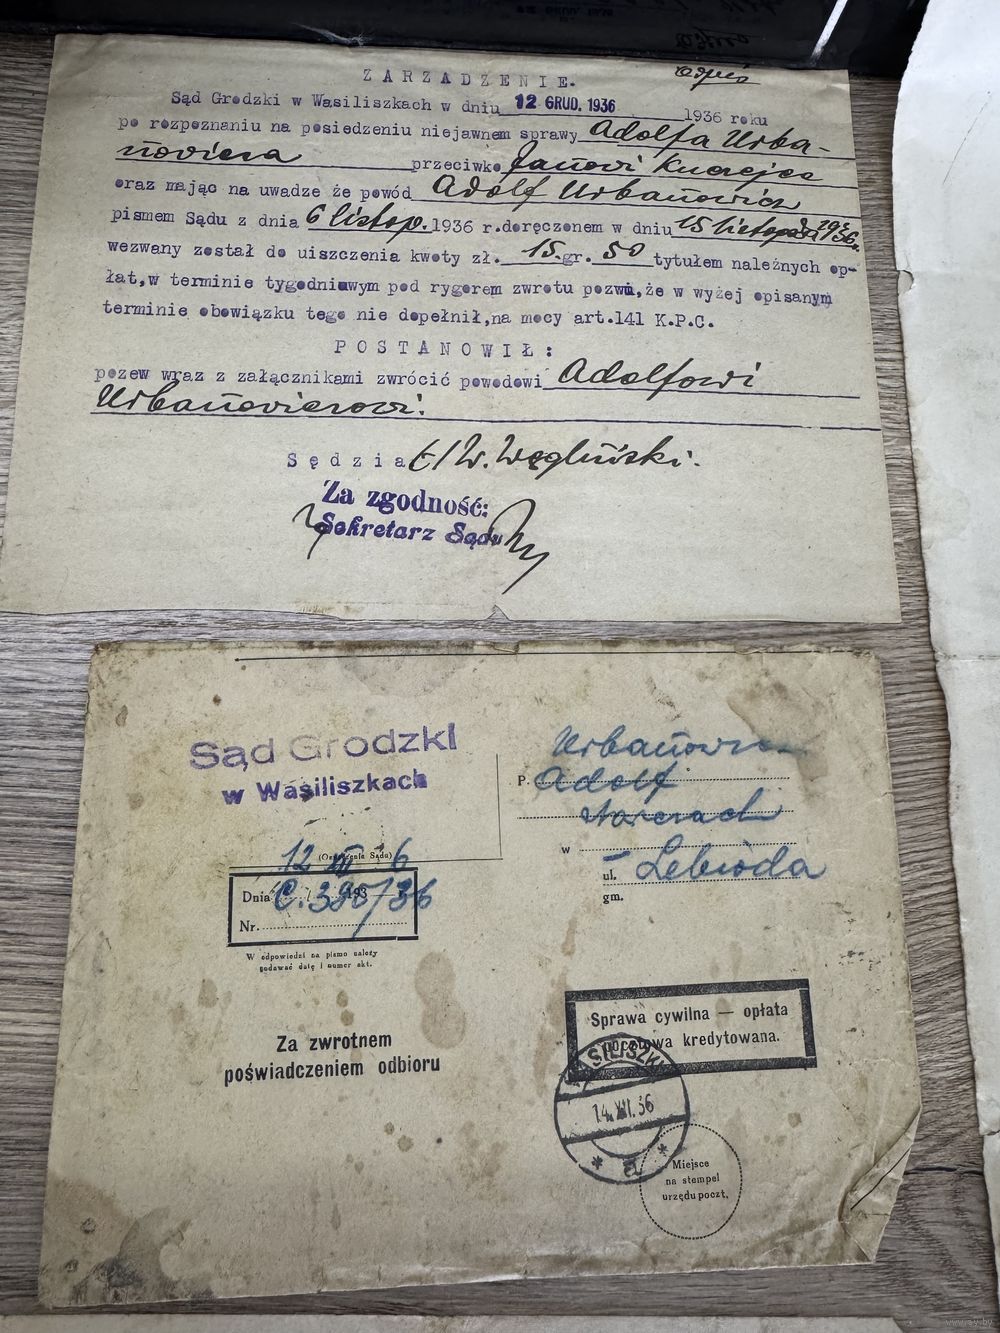 Odpis
ZARZADZENIE.
Sąd Grodzki w Wasiliszkach w dniu 12 GRUD. 1936 1936 roku
po rozpoznaniu na posiedzeniu niejawnem sprawy Adolfa Urba-
nowicza przeciwko Janowi
oraz mając na uwadze że powód Adolf Urbanowicz
pismem Sądu z dnia 6 listop. 1936 r.doręczonem w dniu 15 listopada 1936.
wezwany został do uiszczenia kwoty zł. 15 gr. 50 tytułem należnych op-
łat,w terminie tygodniowym pod rygorem zwrotu pozwu,że w wyżej opisanym
terminie obowiązku tego nie dopełnił,na mocy art.141 K.P.C.
POSTANOWIŁ:
pozew wraz z załącznikami zwrócić powodowi Adolfowi
Urbanowiczowi.
Sędzia /-/ W. Węgliński.
Za zgodność:
Sekretarz Sądu
Sąd Grodzki
w Wasiliszkach
(Oznaczenie Sądu)
12 XII 6
Dnia 193
C. 395/36
Nr.
W odpowiedzi na pismo należy
podawać datę i numer akt.
Za zwrotnem
poświadczeniem odbioru
Urbanowicz
P. Adolf
w
ul. Lebioda
gm.
Sprawa cywilna — opłata
pocztowa kredytowana.
WASILISZKI
14.XII.36
* a *
Miejsce
na stempel
urzędu poczt.
www.ay.by